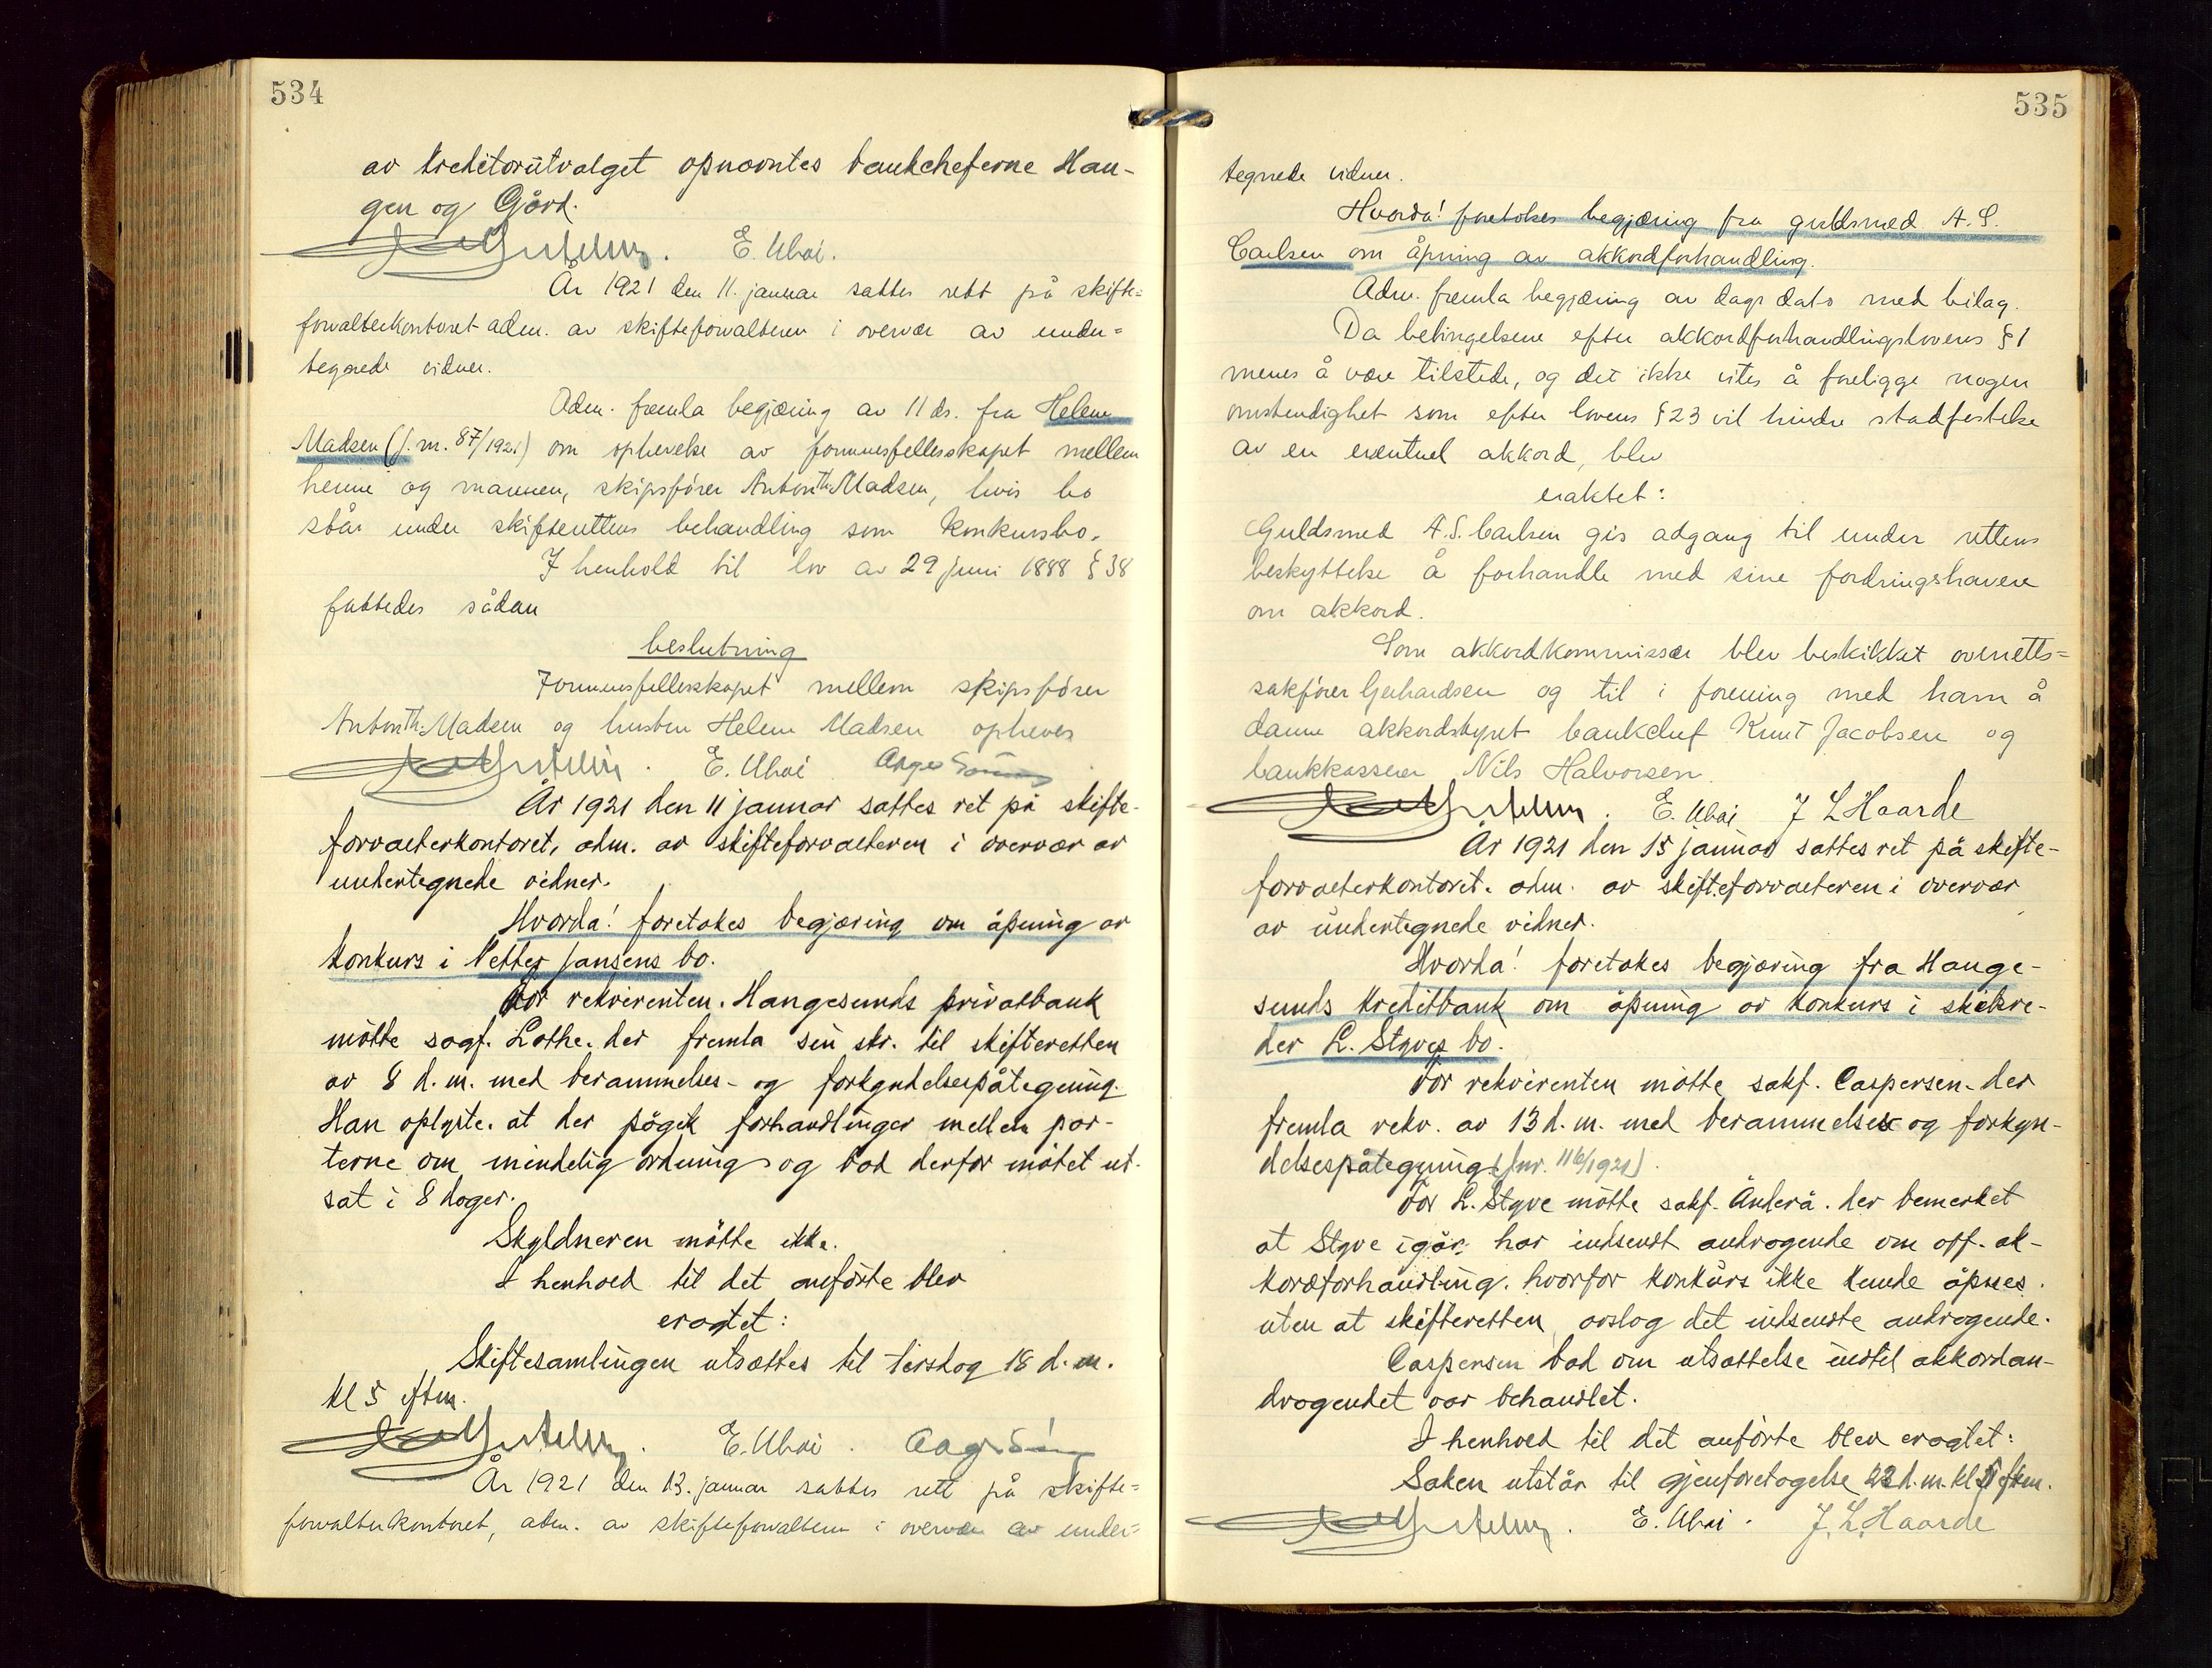 534
av kreditorutvalget opnævntes bankcheferne Hau-
gen og Gård.
E. Ubøi.
År 1921 den 11. januar sattes rett på skifte=
forvalterkontoret adm. av skifteforvalteren i overvær av under=
tegnede vidner.
Adm. fremla begjæring av 11 ds. fra Helene
Madsen (J. nr. 87/1921) om ophevelse av formuesfellesskapet mellem
henne og mannen, skipsfører Anton Th. Madsen, hvis bo
står under skifterettens behandling som konkursbo.
I henhold til lov av 29 juni 1888 § 38
fattedes sådan
beslutning
Formuesfellesskapet mellem skipsfører
Anton Th. Madsen og hustru Helene Madsen opheves
E. Ubøi
År 1921 den 11 januar sattes ret på skifte-
forvalterkontoret, adm. av skifteforvalteren i overvær av
undertegnede vidner.
Hvorda! foretokes begjæring om åpning av
konkurs i Petter Jansens bo.
For rekvirenten. Haugesunds privatbank
møtte sagf. Lothe. der fremla sin skr. til skifteretten
av 8 d.m. med berammelses- og forkyndelsespåtegning.
Han oplyste. at der pågik forhandlinger mellem par-
terne om mindelig ordning og bad derfor møtet ut-
sat i 8 dager.
Skyldneren møtte ikke.
I henhold til det anførte blev
eragtet:
Skiftesamlingen utsættes til tirsdag 18 d.m.
kl 5 eftm.
E. Ubøi.
År 1921 den 13. januar sattes rett på skifte=
forvalterkontoret, adm. av skifteforvalteren i overvær av under=
535
tegnede vidner.
Hvorda! foretokes begjæring fra guldsmed A. S.
Carlsen om åpning av akkordforhandling.
Adm. fremla begjæring av dags dato med bilag.
Da betingelsene efter akkordforhandlingslovens § 1
menes å være tilstede, og det ikke vites å foreligge nogen
omstendighet som efter lovens § 23 vil hindre stadfestelse
av en eventuel akkord, blev
eraktet:
Guldsmed A. S. Carlsen gis adgang til under rettens
beskyttelse å forhandle med sine fordringshavere
om akkord.
Som akkordkommissær blev beskikket overretts=
sakfører Gerhardsen og til i forening med ham å
danne akkordstyret bankchef Knut Jacobsen og
bankkasserer Nils Halvorsen.
E. Ubøi J L Haarde
År 1921 den 15 januar sattes ret på skifte-
forvalterkontoret. adm. av skifteforvalteren i overvær
av undertegnede vidner.
Hvorda! foretokes begjæring fra Hauge-
sunds kreditbank om åpning av konkurs i skibsre-
der L. Styves bo.
For rekvirenten møtte sakf. Caspersen. der
fremla rekv. av 13 d.m. med berammelses og forkyn-
delsespåtegning (Jnr. 116/1921).
For L. Styve møtte sakf. Änderå. der bemerket
at Styve igår har indsendt andragende om off. ak-
kordforhandling. hvorfor konkurs ikke kunde åpnes.
uten at skifteretten avslog det indsendte andragende.
Caspersen bad om utsættelse indtil akkordan-
dragendet var behandlet.
I henhold til det anførte blev eragtet:
Saken utstår til gjenforetagelse 22 d.m. kl 5 eftm.
E. Ubøi. J. L. Haarde